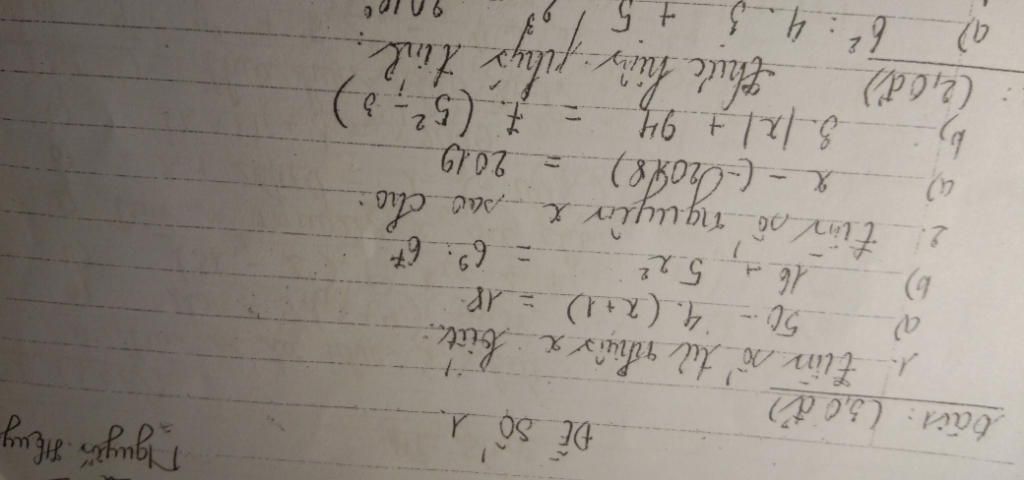 Nguyễn
ĐỀ SỐ 1.
bài 1: (3,0 đ)
1. tìm số tự nhiên x biết:
a) 50 - 4. (x+1) = 18
b) 16 + 5x² = 6⁹ : 6⁷
2. tìm số nguyên x sao cho:
a) x - (-2018) = 2019
b) 3. |x| + 94 = 7. (5² - 3)
(2,0 đ) thực hiện phép tính:
a) 6² : 4 . 3 + 5